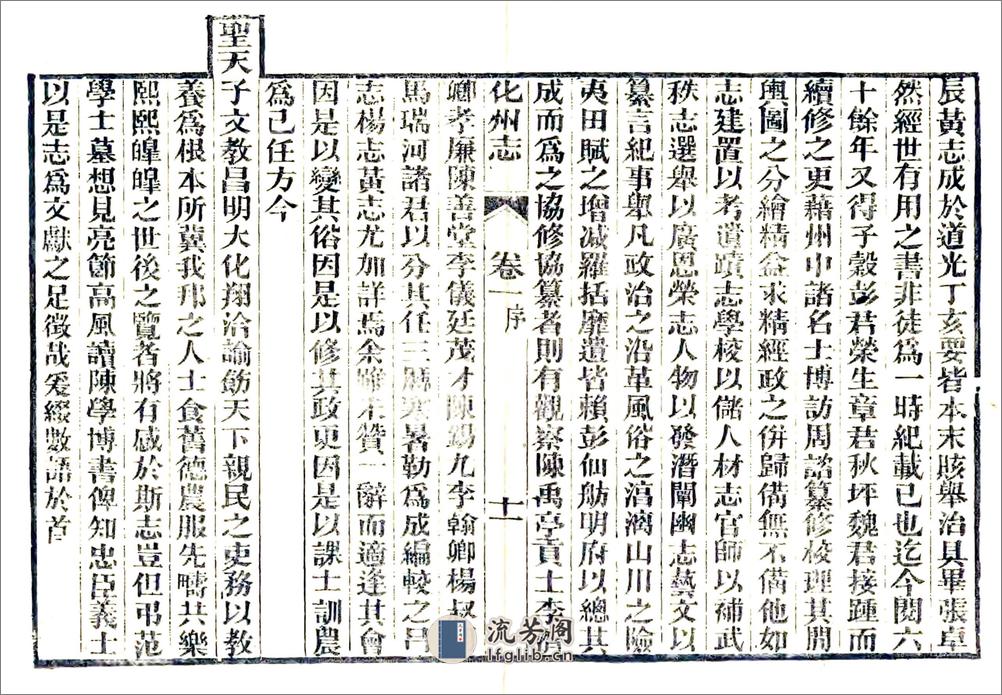 辰黃志成於道光丁亥要皆本末賅舉治具畢張卓
然經世有用之書非徒爲一時紀載已也迄今閱六
十餘年又得子穀彭君榮生章君秋坪魏君接踵而
續修之更藉州中諸名士博訪周諮纂修校理其間
輿圖之分繪精益求精經政之併歸備無不備他如
志建置以考遺蹟志學校以儲人材志官師以補武
秩志選舉以廣恩榮志人物以發潛闡幽志藝文以
纂言紀事舉凡政治之沿革風俗之淳漓山川之險
夷田賦之增減羅括靡遺皆賴彭仙舫明府以總其
成而爲之協修協纂者則有觀察陳禹亭貢士李
化州志 卷一 序 十一
卿孝廉陳善堂李儀廷茂才陳錫九李翰卿楊叔
馬瑞河諸君以分其任三寒暑勒爲成編較之呂
志楊志黃志尤加詳焉余雖未贊一辭而適逢其會
因是以變其俗因是以修其政更因是以課士訓農
爲己任方今
聖天子文教昌明大化翔洽諭飭天下親民之吏務以教
養爲根本所冀我邦之人士食舊德農服先疇共樂
熙熙皥皥之世後之覽者將有感於斯志豈但弔范
學士墓想見亮節高風讀陳學博書俾知忠臣義士
以是志爲文獻之足徵哉爰綴數語於首
流芳阁
lfglib.cn